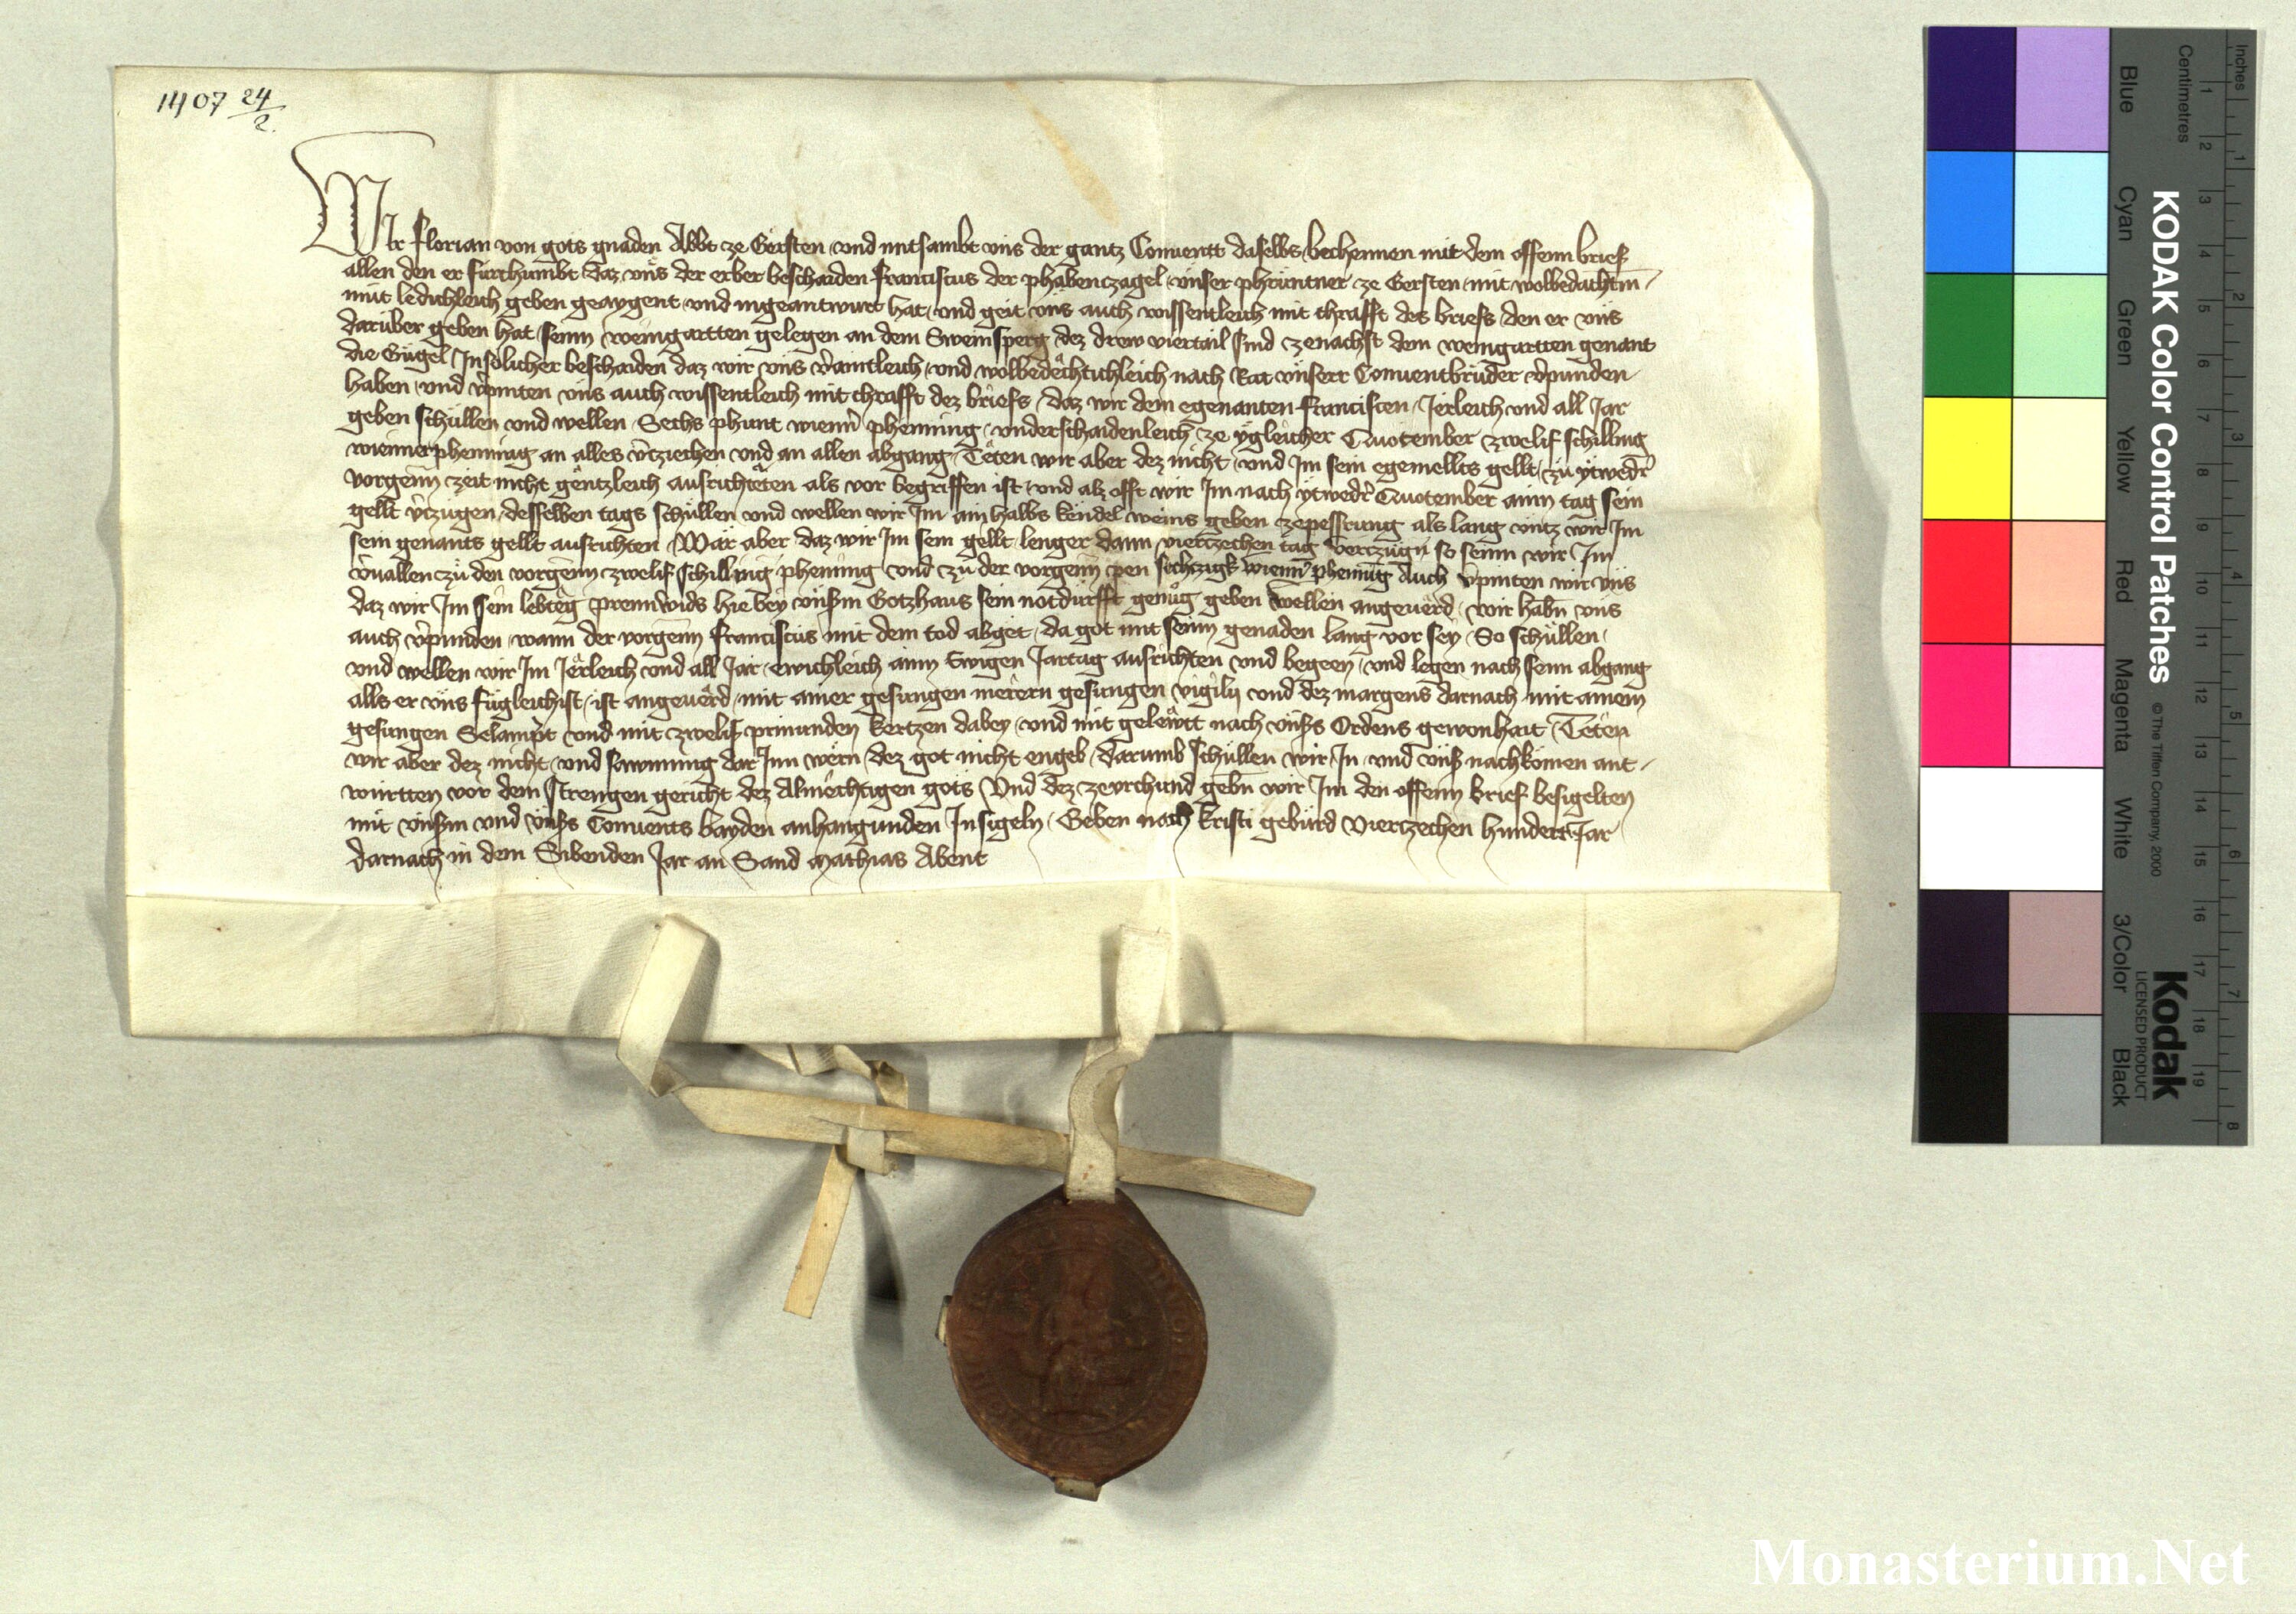 1407 24/2.
Wir Florian von gots gnaden Abbt ze Gersten vnd mitsambt vns der gantz Conuentt daselbs bechennen mit dem offenn brief
allen den er fürchumbt daz vns der erber beschaiden Franciscus der phabenczagel vnser phrüntner ze Gersten mit wolbedachtm
müt ledichleich geben geaygent vnd ingeantwurt hat vnd geit vns auch wissentleich mit chrafft des briefs den er vns
darüber geben hat seinn weingartten gelegen an dem Sweinsperg dez drew viertail sind zenachst dem weingartten genant
die Gügel In solicher beschaiden daz wir vns v̉aintleich vnd wolbedêchtichleich nach Rat vnserr Conuentbrüder v̉punden
haben vnd v̉pinten vns auch wissentleich mit chrafft dez briefs daz wir dem egenanten Franciscen Jêrleich vnd all Jar
geben schüllen vnd wellen Sechs phunt wienn̉ phenning vnderschaidenleich ze ygleicher Quotember zwelif schilling
wienner phenning an alles v̉tziechen vnd an allen abgang Têten wir aber dez nicht vnd Im sein egemellts gellt zu ytwedr̉
vorgenn̄ zeit nicht gêntzleich ausrichtêten als vor begriffen ist vnd alz offt wir Im nach ytwedr̉ Quotember ainn tag sein
gellt v̉tzügen desselben tags schüllen vnd wellen wir Im ain halbs kendel weins geben zepessrung als lang vntz wir Im
sein genants gellt ausrichten Wär aber daz wir Im sein gellt lenger dann viertzechen tag vertzügn̄ so seinn wir Im
v̉uallen zu den vorgenn̄ zwelif schilling phening vnd zu der vorgenn̄ pen sechtzigk wienn̉ phening Auch v̉pinten wir vns
daz wir Im sein lebtêg prennwids hie bey vnßm Gotzhaus sein notdürfft genug geben wellen angeuêrd wir habn̄ vns
auch v̉punden wann der vorgenn̄ Franciscus mit dem tod abget da got mit seinn genaden lang vor sey So schüllen
vnd wellen wir Im Jêrleich vnd all Jar ewichleich ainn Ewigen Jartag ausrichten vnd begeen vnd legen nach seinn abgang
alls er vns fügleich ist ist angeuêrd mit ainer gesungen merern gesungen vigilij vnd dez margens darnach mit ainem
gesungen Selampt vnd mit zwelif prinunden kertzen dabey vnd mit gelêwtt nach vnßs Ordens gewonhait Têten
wir aber dez nicht vnd sawmung dar Inn wêrn dez got nicht engeb darumb schüllen wir In vnd vnß nachkömen ant
württen vor dem strengen gericht dez Almêchtigen gots Vnd dez zevrchund gebn̄ wir Im den offenn brief besigelten
mit vnßm vnd vnßs Conuents bayden anhangunden Insigeln Geben nach kristi gebürd Viertzechen hundert Jar
darnach in dem Sibenden Jar an Sand Mathias Abent
KODAK Color Control Patches
© The Tiffen Company, 2000
Kodak
LICENSED PRODUCT
Inches
Centimetres
Blue Cyan Green Yellow Red Magenta White 3/Color Black
1 2 3 4 5 6 7 8 9 10 11 12 13 14 15 16 17 18 19
1 2 3 4 5 6 7 8
Monasterium.Net